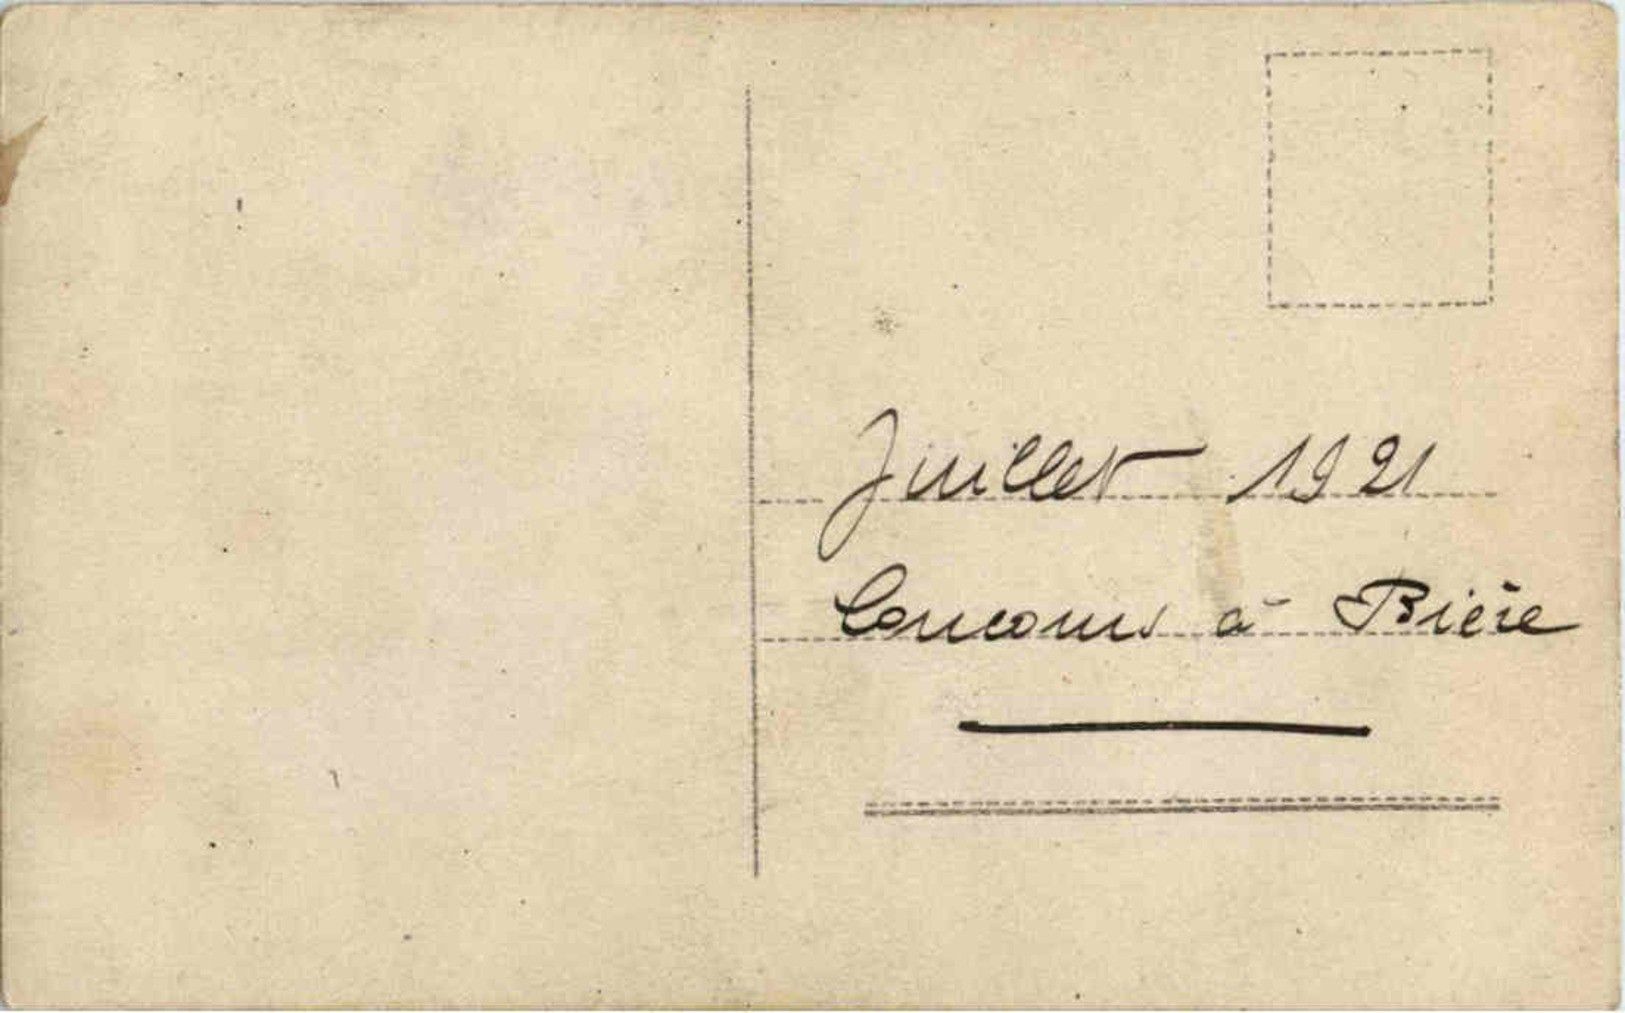 Juillet 1921
Concours à Bière